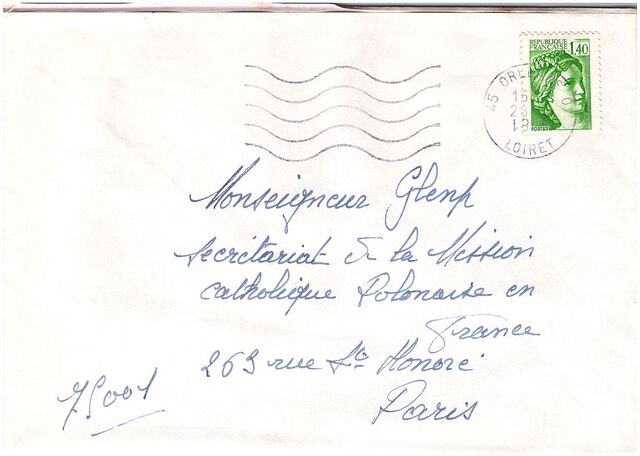 REPUBLIQUE
FRANÇAISE 1,40
POSTES
45 ORLE
15
LOIRET
Monseigneur Glemp
Secrétariat de la Mission
catholique Polonaise en
France
263 rue St Honoré
75001
Paris